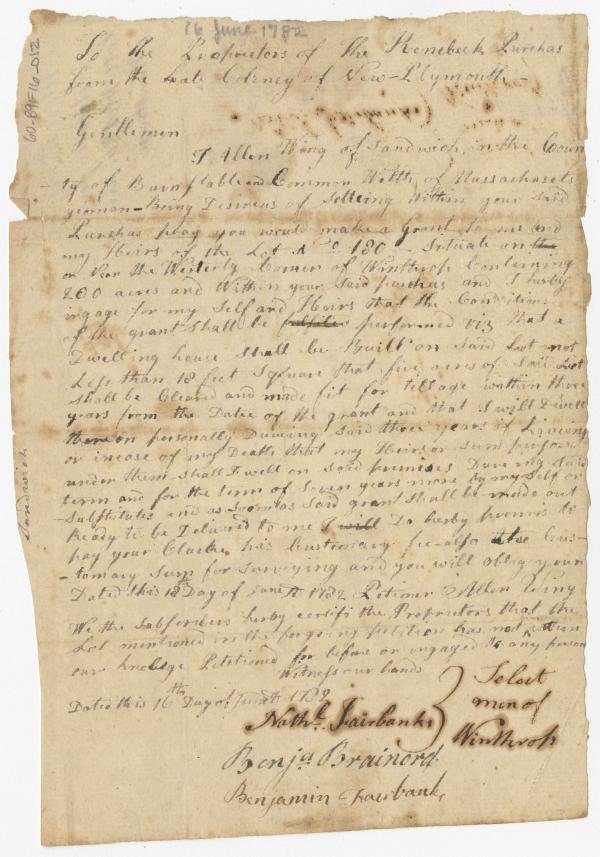 16 June 1782
60-89F16-012
To the Proprietors of the Kenebeck Purchas
from the Late Colney of New-Plymouth -
Gentlemen
I Allen Wing of Sandwich in the Coun
ty of Barnstable and Common Welth of Massachusets
yeoman - Being Desirous of Setteling Within your Said
Purchas pray you would make a Grant to me and
my Heirs of the Lot No 180 - Situate on the
or Near the Westerly Corner of Winthrop Containing
200 acres and Within your Said purchas and I herby
ingage for my Self and Heirs that the Conditions
of the grant Shall be fulfiled performed viz that a
Dwelling house Shall be Built on Said Lot not
Less than 18 feet Square that five acres of Said Lot
Shall be Cleared and made fit for tellage within three
years from the Date of the grant and that I will Dwell
thereon personally Dureing Said three years if Liveing
or incase of my Death that my Heirs or Sum person
under them Shall Dwell on Said premises Dureing Said
term and for the term of Seven years more by my Self or
Substitutes and as Soon as Said grant Shall be made out
Ready to be Delivered to me I will Do herby promis to
pay your Clarke his Customary fee also the Cus-
-tomary Sum for Surveying and you will oblig your
Dated this 18th Day of June AD 1782 Petitiner Allen Wing
We the Subscribers herby certifi the Proprietors that the
Lot mentioned in the forgoing petition has not
our Knolege Petitioned for before or ingaged to any person
Witness our hands
Dated this 16th Day of June AD 1782
Nathl Fairbanks
Benja Brainord
Benjamin Fairbanks
Select
men of
Winthrop
Sandwich